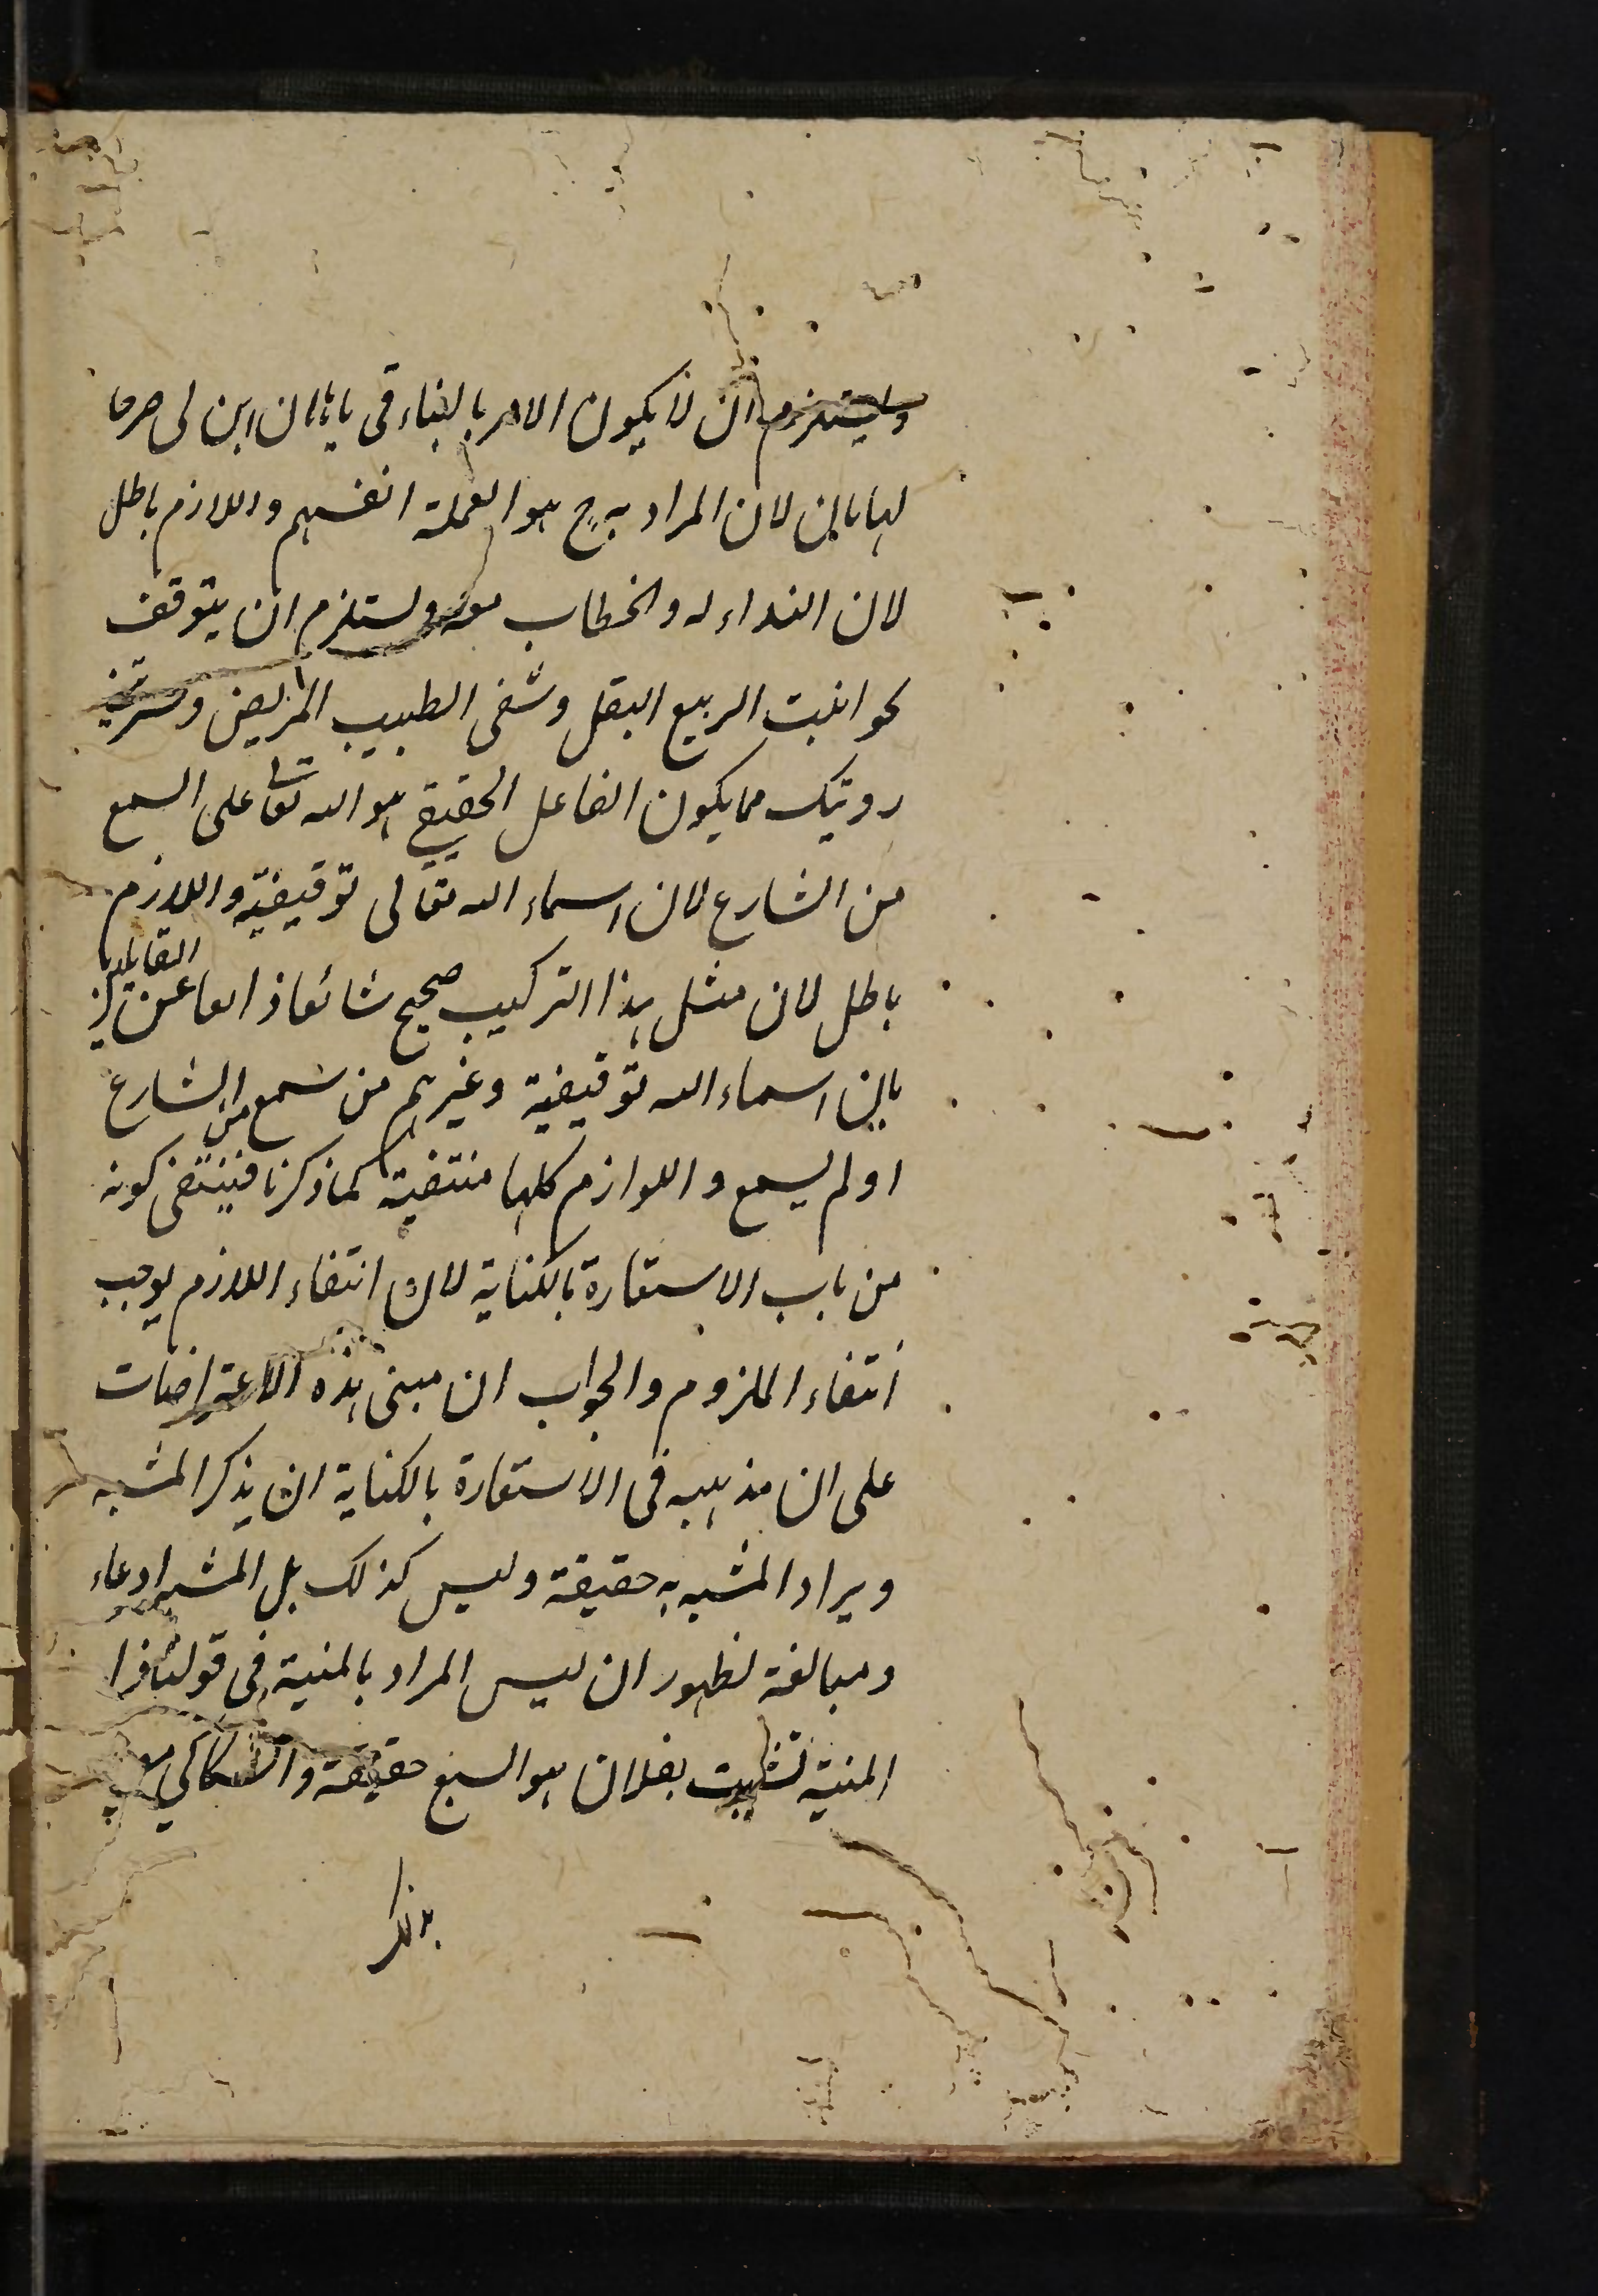 ويستلزم ان لا يكون الامر بالبناء في يا هامان ابن لي صرحا
لهامان لان المراد به ح هو العملة انفسهم واللازم باطل
لان النداء له والخطاب معه ويستلزم ان يتوقف
نحو انبت الربيع البقل وشفى الطبيب المريض وسرتني
رويتك مما يكون الفاعل الحقيقي هو الله تعا على السمع
من الشارع لان اسماء الله تعالى توقيفية واللازم
باطل لان مثل هذا التركيب صحيح شائع ذائع عند القائلين
بان اسماء الله توقيفية وغيرهم من سمع من الشارع
او لم يسمع واللوازم كلها منتفية كما ذكرنا فينتفي كونه
من باب الاستعارة بالكناية لان انتفاء اللازم يوجب
انتفاء الملزوم والجواب ان مبنى هذه الاعتراضات
على ان مذهبه في الاستعارة بالكناية ان يذكر المشبه
ويراد المشبه به حقيقة وليس كذلك بل المشبه ادعاء
ومبالغة لظهور ان ليس المراد بالمنية في قولنا
المنية نشبت بفلان هو السبع حقيقة والسكاكي
بذلك